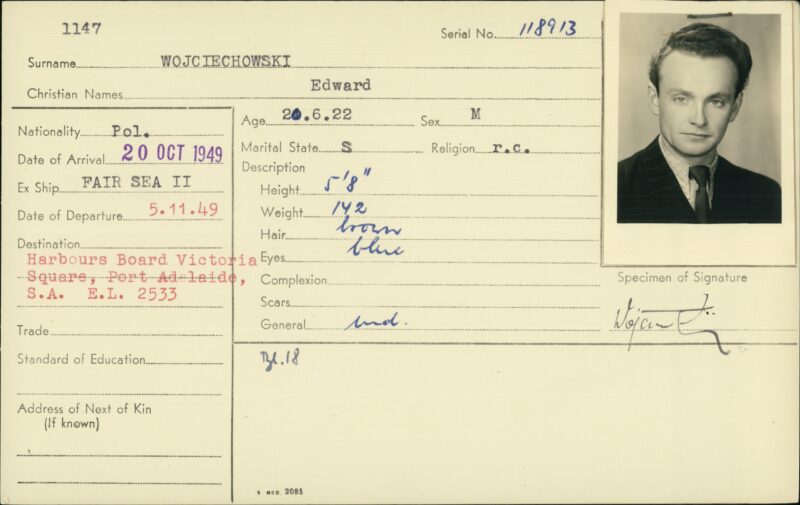 1147
Serial No. 118913
Surname WOJCIECHOWSKI
Christian Names Edward
Nationality Pol.
Date of Arrival 20 OCT 1949
Ex Ship FAIR SEA II
Date of Departure 5.11.49
Destination
Harbours Board Victoria
Square, Port Adelaide,
S.A. E.L. 2533
Trade
Standard of Education
Address of Next of Kin
(If known)
Age 20.6.22 Sex M
Marital State S Religion r.c.
Description
Height 5'8"
Weight 142
Hair brown
Eyes blue
Complexion
Scars
General
18
Specimen of Signature
5 MCD. 2085